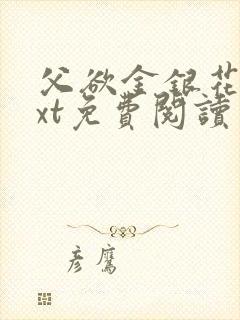 父欲金銀花
xt免費閱讀
彦鷹